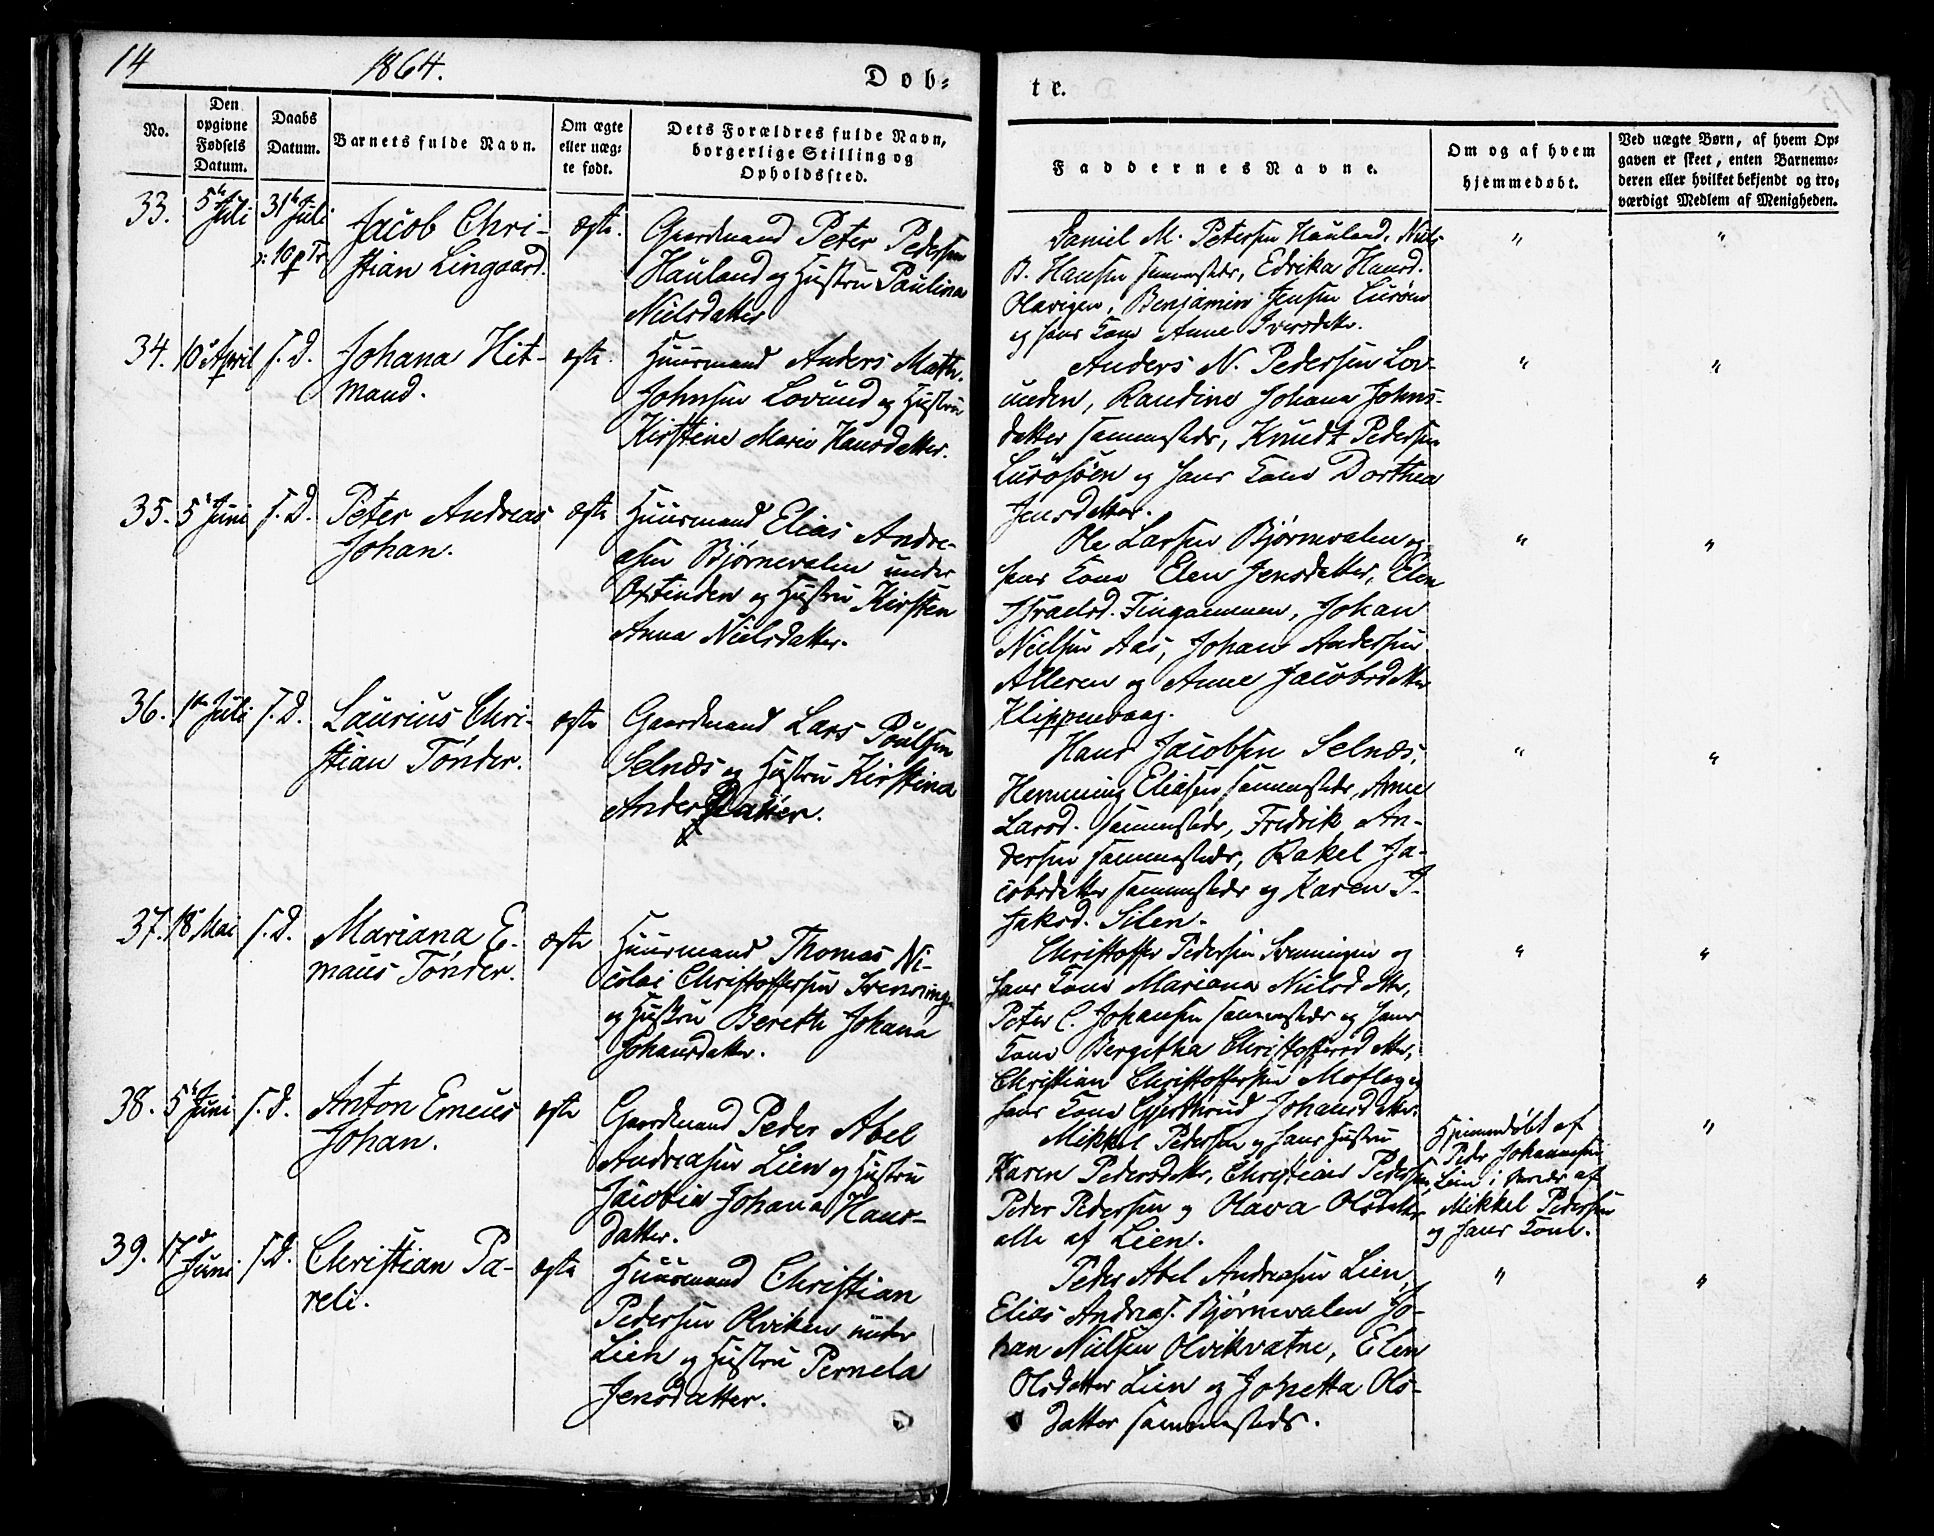 14
1864.
Dob-
te.
No.
Den
opgivne
Fødsels
Datum.
Daabs
Datum.
Barnets fulde Navn.
Om ægte
eller uæg-
te født.
Dets Forældres fulde Navn,
borgerlige Stilling og
Opholdssted.
Faddernes Navne.
Om og af hvem
hjemmedøbt.
Ved uægte Børn, af hvem Op-
gaven er skeet, enten Barnemo-
deren eller hvilket bekjendt og tro-
værdigt Medlem af Menigheden.
33. 5te Juli 31te Juli
10 p Tr
Jacob Chri-
stian Lingaard.
ægte.
Gaardmand Peter Pedersen
Hauland og Hustru Paulina
Nielsdatter
Daniel M. Petersen Hauland, Niels
B. Hansen sammesteds, Edrika Hansd.
Olavigen, Benjamin Jensen Lurøen
og hans Kone Anne Iversdatter.
" "
34. 10de April s. D.
Johana Hit-
mand.
ægte.
Huusmand Anders Math.
Johnsen Lovund og Hustru
Kirstine Marie Hansdatter.
Anders N. Pedersen Lov-
unden, Randine Johana Johns-
datter sammesteds, Knudt Pedersen
Lurøsøen og hans Kone Dorthea
Jensdatter.
" "
35. 5te Juni s. D.
Peter Andreas
Johan.
ægte
Huusmand Elias Andre-
asen Bjørnevalen under
Oxtinden og Hustru Kirsten
Anna Nielsdatter.
Ole Larsen Bjørnevalen og
hans Kone Elen Jensdatter, Elen
Israelsd. Tingammen, Johan
Nielsen Aas, Johan Andersen
Alleren og Anne Jacobsdatter
Klippenvaag.
" "
36. 1ste Juli s. D.
Laurius Chri-
stian Tønder.
ægte
Gaardmand Lars Poulsen
Selnæs og Hustru Kirstina
Andersdatter.
Hans Jacobsen Selnæs,
Henning Eliasen sammesteds, Anne
Larsd. sammesteds, Fredrik An-
dersen sammesteds, Rakel Ja-
cobsdatter sammesteds og Karen J.
Jakosd. Silen.
" "
37. 18de Mai s. D.
Mariana E-
maus Tønder.
ægte
Huusmand Thomas Ni-
colai Christoffersen Svenning
og Hustru Bereth Johana
Johansdatter.
Christoffer Pedersen Svenningen og
hans Kone Mariana Nielsdatter,
Peter C. Johansen sammesteds og hans
Kone Bergitha Christoffersdatter,
Christian Christoffersen Moflag og
hans Kone Gjerthrud Johansdatter.
" "
38. 5te Juni s. D.
Anton Emeus
Johan.
ægte
Gaardmand Peder Abel
Andreasen Lien og Hustru
Jacobia Johana Hans-
datter.
Mikkel Pedersen og hans Hustru
Karen Pedersdatter, Christian Pedersen,
Peder Pedersen og Olava Olsdatter
alle af Lien.
Hjemmedøbt af
Peder Johannesen
Lien i Nærvær af
Mikkel Pedersen
og hans Kone.
"
39. 17de Juni s. D.
Christian Pa-
reli.
ægte
Huusmand Christian
Pedersen Olviken under
Lien og Hustru Pernela
Jensdatter.
Peder Abel Andreasen Lien,
Elias Andreas. Bjørnevalen Jo-
han Nielsen Olvikvatne, Elen
Olsdatter Lien og Johetta Ols-
datter sammesteds.
" "